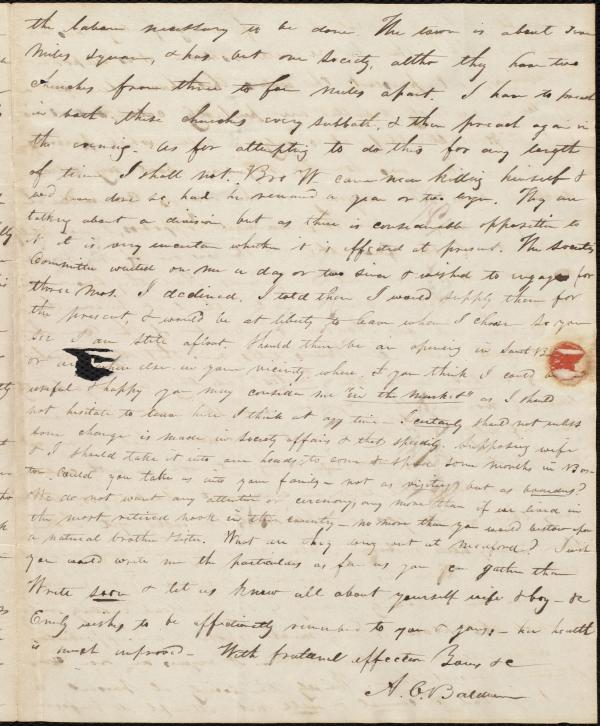 the labour necessary to be done. The town is about
miles square, & has but one Society, altho they have two
churches from three to four miles apart. I have to preach
in both these churches every sabbath, & then preach again in
the evening. As for attempting to do this for any length
of time I shall not. Bro W. came near killing himself &
would have done so, had he remained a year or two longer. They are
talking about a division, but as there is considerable opposition to
it it is very uncertain whether it is effected at present. The society
Committee waited on me a day or two since & wished to engage for
three mos. I declined. I told them I would supply them for
the present, & would be at liberty to leave when I choose. So you
see I am still afloat. Should there be an opening in
or where else in your vicinity where, if you think I could be
useful & happy you may consider me "in the market" as I should
not hesitate to leave here I think at any time. I certainly should not unless
some change is made in Society affairs & that speedily. Supposing wife
& I should take it into our heads to come & spend some months in Bos-
ton. Could you take us into your family - not as visitors, but as boarders?
We do not want any attention or ceremony, any more than if we lived in
the most retired nook in the country - no more than you would bestow upon
a natural brother & sister. What are they doing out at Medford? I wish
you would write me the particulars as far as you can gather them
Write soon & let us know all about yourself wife & boy - &c
Emily wishes to be affectionately remembered to you & yours - her health
is much improved - With fraternal affection Yours &c
A. C. Baldwin